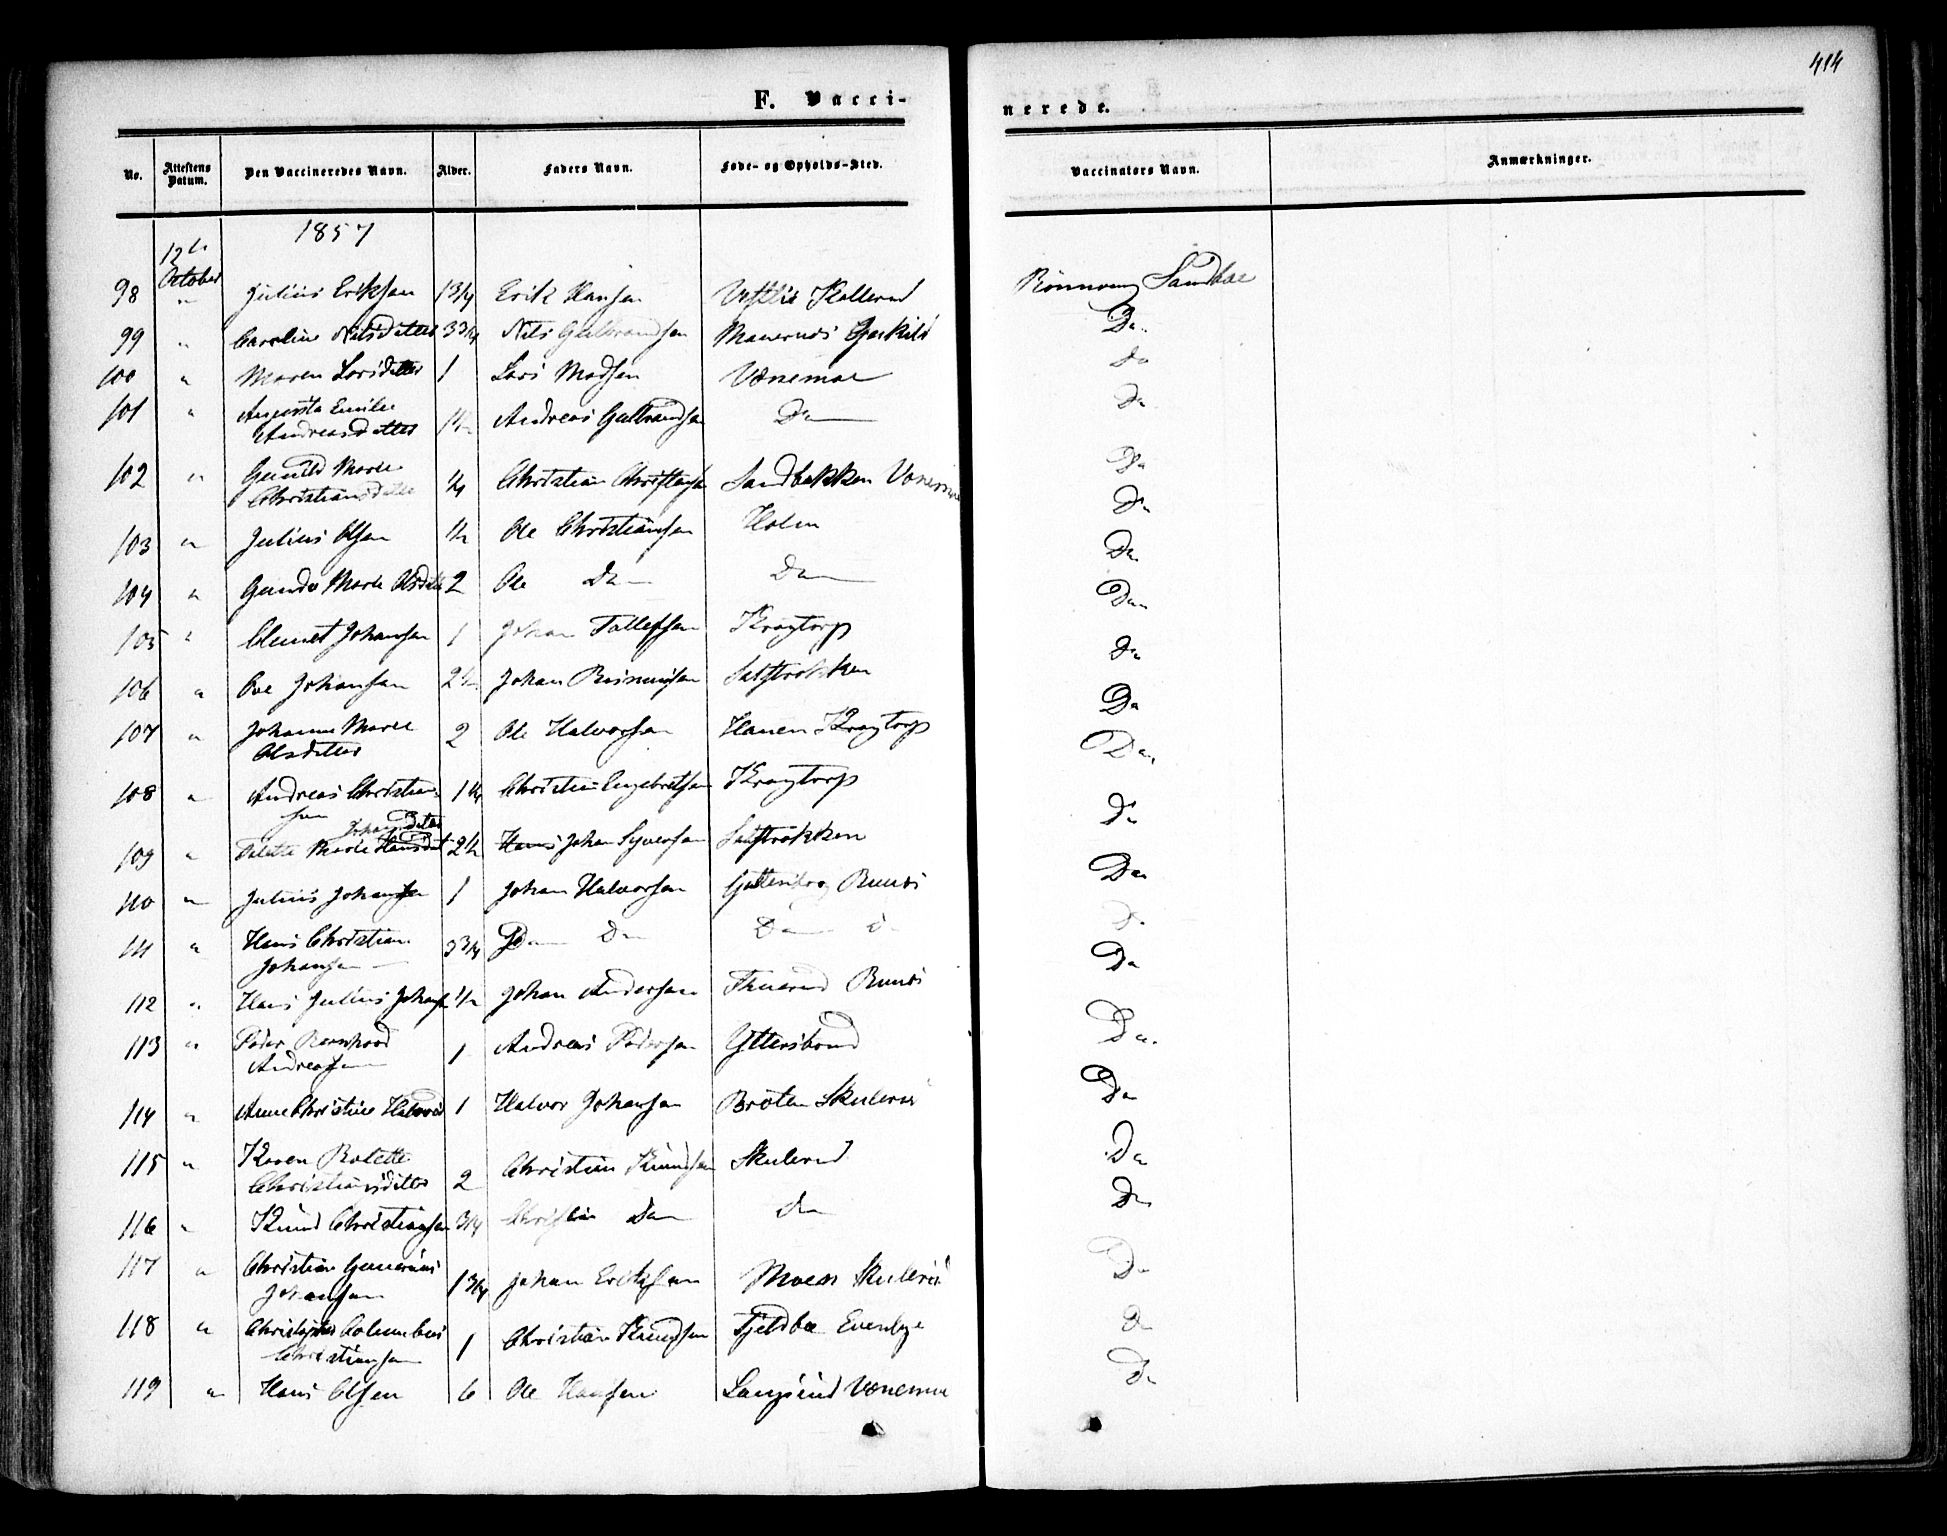 414
F. Vacci-
nerede.
No.
Attestens Datum.
Den Vaccineredes Navn.
Alder.
Faders Navn.
Føde- og Opholds-Sted.
Vaccinators Navn.
Anmærkninger.
1857
12te
October
98 " Julius Eriksen 1 3/4 Erik Hansen Vestlie Kollerud Rönnaug Sandbæ
99 " Caroline Nilsdatter 3 3/4 Nils Gulbrandsen Da
100 " Maren Larsdatter 1 Lars Madsen Vænemoe Do
101 " Augusta Emilie
Andreasdatter 1 1/2 Andreas Gulbrandsen Do Do
102 " Gunild Marie
Christiansdatter 1/4 Christian Christiansen Sandbækken Vænemoe Do
103 " Julius Olsen 1/2 Ole Christiansen Holm Do
104 " Marie Olsdatter 2 Ole Do Do Do
105 " Clemet Johansen 1 Johan Tollefsen Krogtorp Do
106 " Ole Johansen 2 1/2 Johan Do
107 " Johanne Marie
Olsdatter 2 Ole Halvorsen Krogtorp Do
108 " Andreas Christian-
sen 1 1/4 Christian Engebretsen Krogtorp Do
Johansdatter
109 " Marie Hansdat 2 1/2 Hans Johan Syversen Do
110 " Julius Johansen 1 Johan Halvorsen Do
111 " Hans Christian
Johansen 3 3/4 Do Do Do Do Do
112 " Hans Julius Johans 1/2 Johan Andersen Do
113 " Peder Bernhard
Andreasen 1 Andreas Pedersen Yttersbond Do
114 " Anne Christine Halvors 1 Halvor Johansen Bröten Skulerud Do
115 " Karen
Christiansdatter 2 Christian Knudsen Skulerud Do
116 " Knud Christiansen 3/4 Christian Do Do Do
117 " Christian
Johansen 1 3/4 Johan Eriksen Moen Skulerud Do
118 " Christopher Columbus
Christiansen 1 Christian Knudsen Fjeldbæ Evenbye Do
119 " Hans Olsen 6 Ole Hansen Vænemoe Do